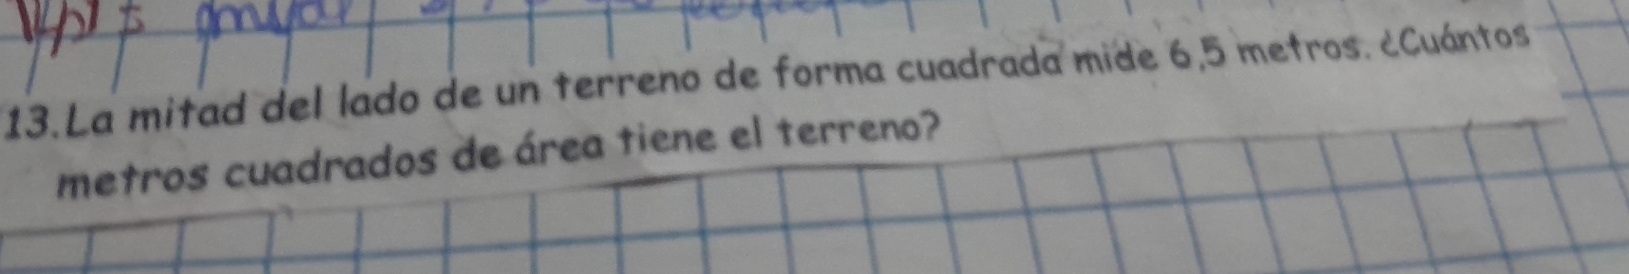 13. La mitad del lado de un terreno de forma cuadrada mide 6,5 metros. ¿Cuántos
metros cuadrados de área tiene el terreno?